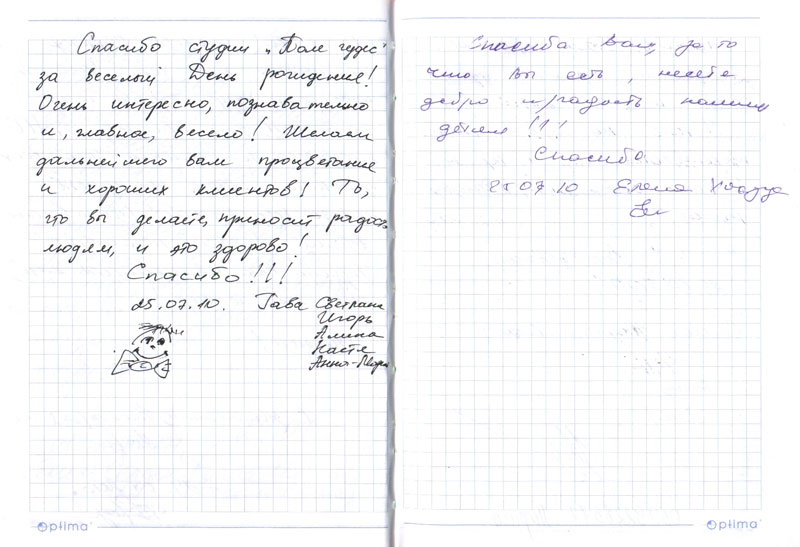 Спасибо студии „Поле чудес"
за веселый День рождение!
Очень интересно, познавательно
и, главное, весело! Желаем
дальнейшего вам процветание
и хороших клиентов! То,
что вы делаете, приносит радость
людям, и это здорово!
Спасибо!!!
25.07.10. Гава Светлана
Игорь
Алина
Настя
Анна-Мария
optima
Спасиба Вам, за то
что Вы есть, несете
добро и радость нашим
детям !!!
Спасибо
25 07.10 Елена
optima